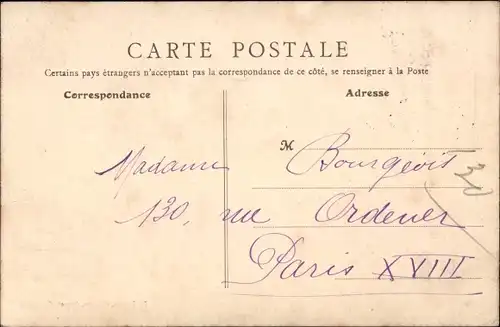 CARTE POSTALE
Certains pays étrangers n'acceptant pas la correspondance de ce côté, se renseigner à la Poste
Correspondance Adresse
M
Madame Bourgeois
130, rue Ordener
Paris XVIII
30